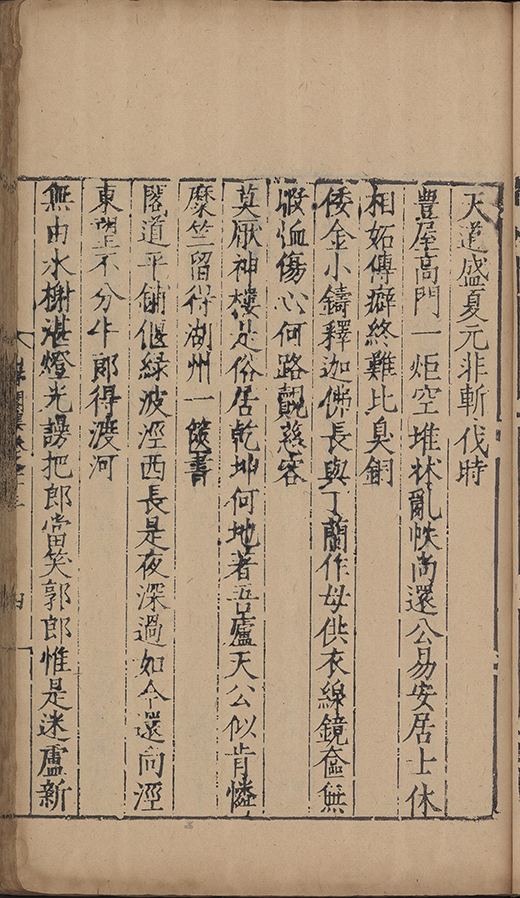 天道盛夏元非斬伐時
豊屋高門一炬空堆牀亂帙尚還公易安居士休
相妬傳癖終難比臭銅
倭金小鑄釋迦佛長與丁蘭作母供衣線鏡奩無
暇恤傷心何路覿慈容
莫厭神樓是俗居乾坤何地著吾廬天公似肯憐
糜竺留得湖州一篋書
閣道平鋪偃綠波涇西長是夜深過如今還向涇
東望不分牛郎得渡河
無由水榭湛燈光謾把郎當笑郭郎惟是迷廬新
四